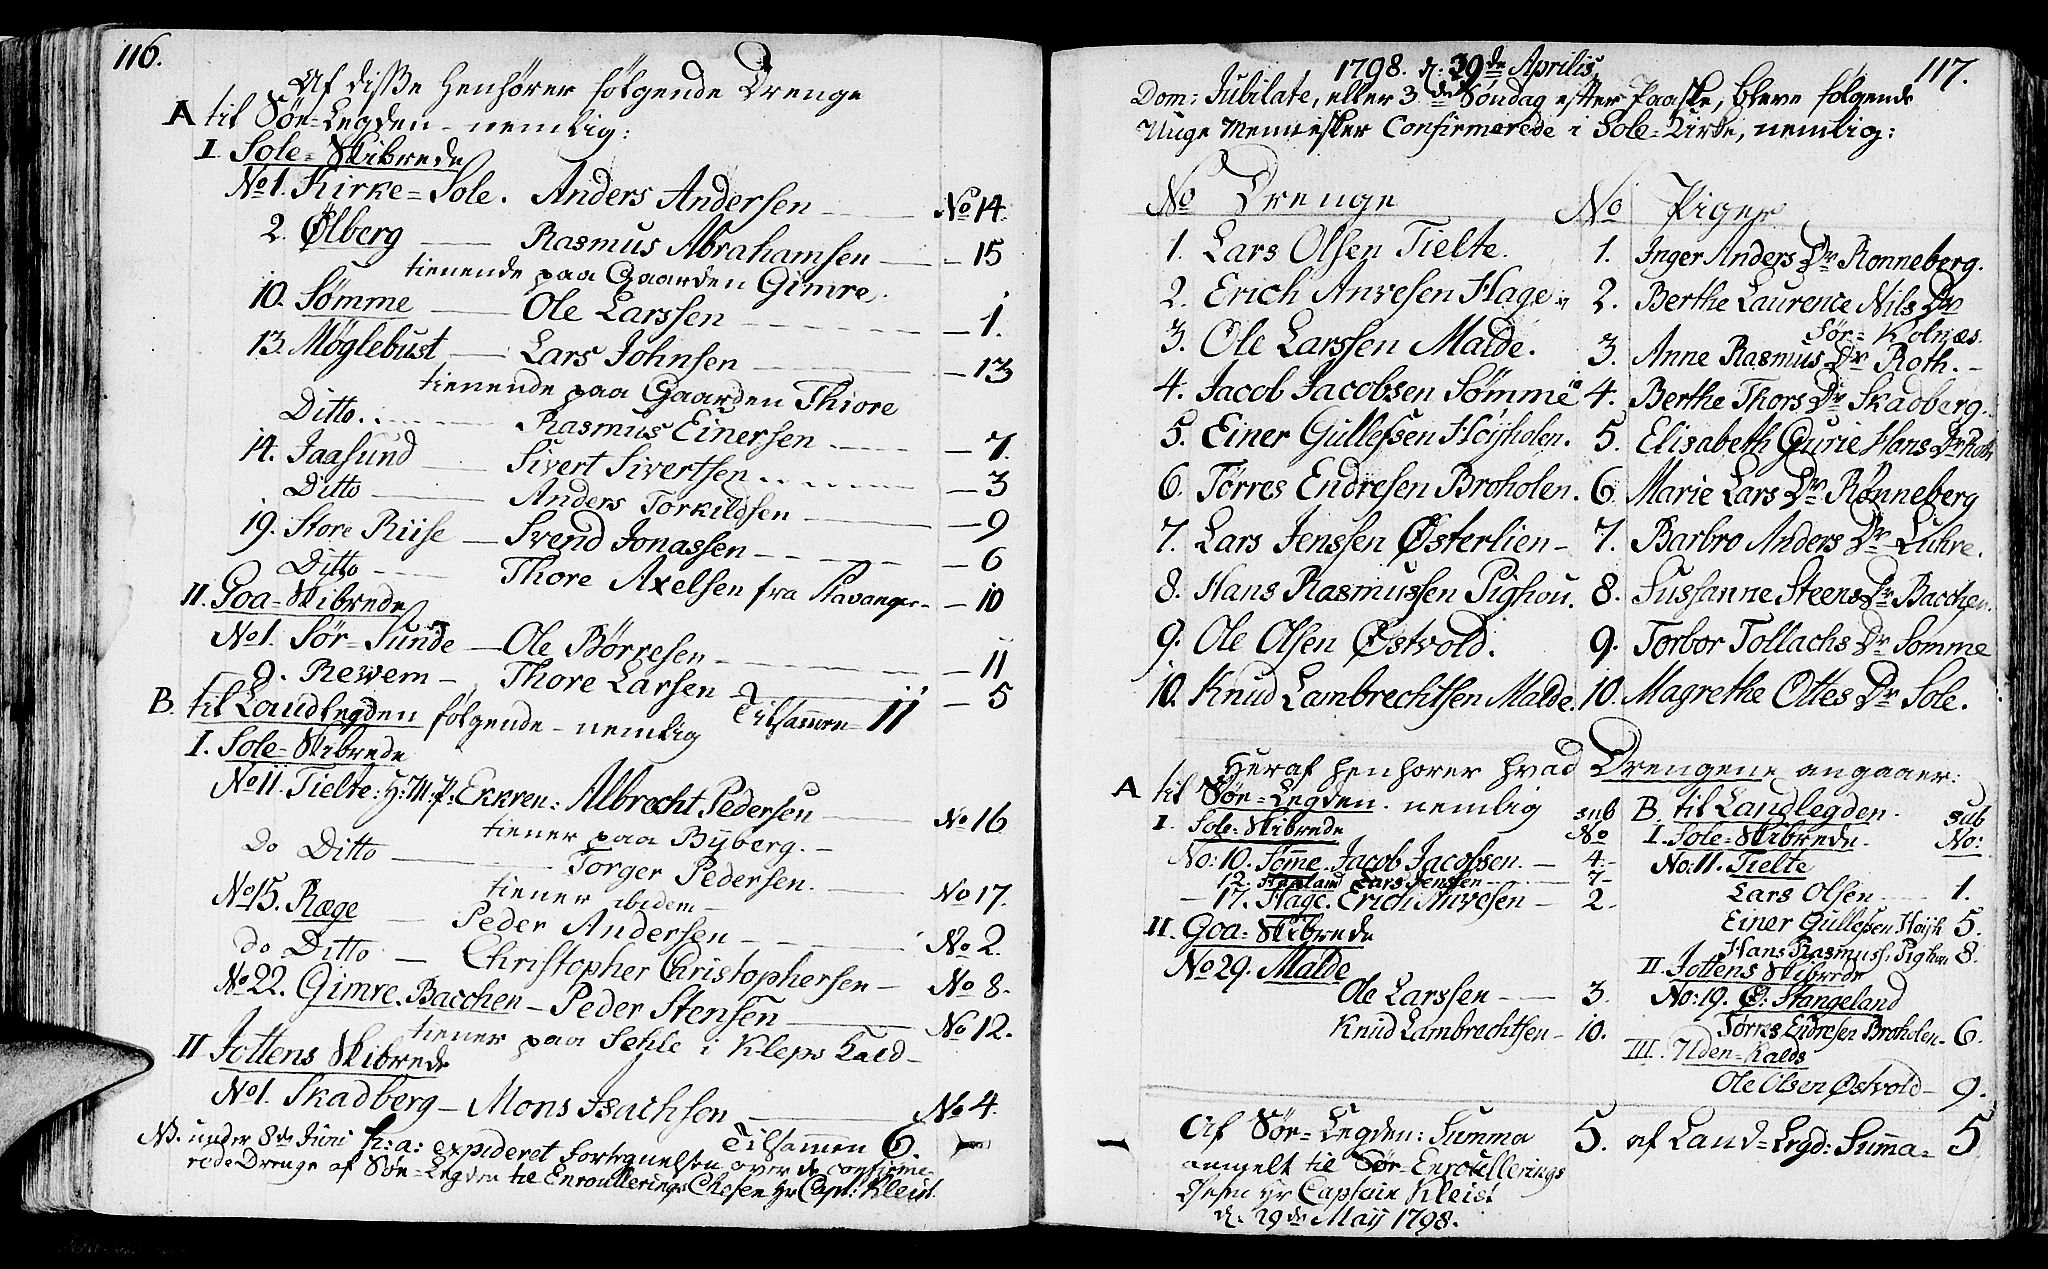 116.
Af disse henhører følgende Drenge
A til Søe-Legden - nemlig:
I. Sole-Skibrede
No 1. Kirke-Sole. Anders Andersen No 14.
2. Ølberg Rasmus Abrahamsen 15
tienende paa Gaarden Gimre.
10. Sømme Ole Larssen 1.
13. Møglebust Lars Johnsen 13
tienende paa Gaarden Thiore
Ditto Rasmus Einersen 7.
14. Jaasund Sivert Sivertsen 3
Ditto Anders Torkildsen 9
19. Store Riise Svend Jonassen 6
Ditto Thore Axelsen fra Stavanger 10
II. Goa-Skibrede
No 1. Sør-Sunde Ole Børresen 11
9. Rewem Thore Larsen 5
B. til Landlegden følgende - nemlig Tilsammen 11
I. Sole-Skibrede
No 11. Tielte: H: M: P: Ekkren: Albrecht Pedersen No 16
tiener paa Byberg.
Do Ditto Torger Pedersen. No 17.
tiener ibidem
No 15. Ræge Peder Andersen No 2.
do Ditto Christopher Christophersen No 8.
No 22. Gimre. Bacchen Peder Stensen No 12.
tiener paa Sehle i Kleps Kald
II Jottens Skibrede
No 1. Skadberg Mons Isachsen No 4.
Tilsammen 6.
NB. under 8de Juni h: a: expideret fortegnelsen over de confirme-
rede Drenge af Søe-Legden til Enroullerings Chefen Hr Capt: Kleist
117.
1798. d: 29de Aprilis,
Dom: Jubilate, eller 3de Søndag efter Paaske, bleve følgende
Unge Mennesker Confirmerede i Sole-Kirke, nemlig:
No Drenge No Piger
1. Lars Olsen Tielte. 1. Inger Anders Dr Ronneberg.
2. Erich Anvesen Hage 2. Berthe Laurence Nils Dr
Sør-Kolnæs.
3. Ole Larssen Malde. 3. Anne Rasmus Dr Roth.
4. Jacob Jacobsen Sømme 4. Berthe Thors Dr Skadberg.
5. Einer Gullefsen Høyholen. 5. Elisabeth Gurie Hans Dr Roth
6. Tørres Endresen Broholen. 6. Marie Lars Dr Rønneberg
7. Lars Jenssen Østerlien 7. Barbro Anders Dr Luhre.
8. Hans Rasmussen Pighou. 8. Sussanne Steens Dr Bacchen.
9. Ole Olsen Østvold. 9. Torbor Tollachs Dr Somme
10. Knud Lambrechtsen Malde. 10. Magrethe Ottes Dr Sole.
Heraf henhører hvad Drengene angaaer:
A til Søe-Legden. nemlig sub No
I. Sole-Skibrede
No: 10. Sømme. Jacob Jacobsen. 4.
12. Lars Jenssen 7
17. Hage. Erich Anvesen 2
II. Goa-Skibrede
No 29. Malde
Ole Larssen 3.
Knud Lambrechtsen 10.
B. til Landlegden. sub No:
I. Sole-Skibrede.
No: 11. Tielte
Lars Olsen 1.
Einer Gullefsen Høyh 5.
Hans Rasmuss: Pighou 8.
II. Jottens Skibrede
No: 19. Ø: Stangeland
Tørres Endresen Broholen 6.
III. Uden-Kalds
Ole Olsen Østvold 9.
Af Søe-Legden: Summa 5. af Land-Legd: Summa 5
anmelt til Søe-Enroullerings
Chefen Hr Captain Kleist
d: 29de May 1798.